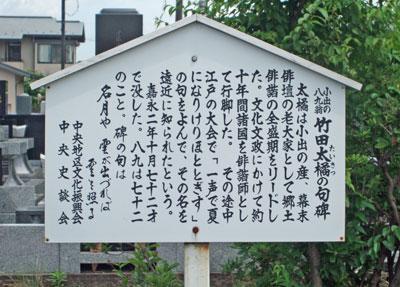 小出の
八九翁
竹田太橘の句碑
たいきつ
太橘は小出の産、幕末
俳壇の老大家として郷土
俳諧の全盛期をリードし
た。文化文政にかけて約
十年間諸国を俳諧師とし
て行脚した。その途中
江戸の大会で「一声で夏
になりけりほととぎす」
の句をよんで、その名を
遠近に知られたという。
嘉永二年十月七十二才
で没した。八九は七十二
のこと。碑の句は
名月や 雲が出づれば
中央地区文化振興会
中央史談会